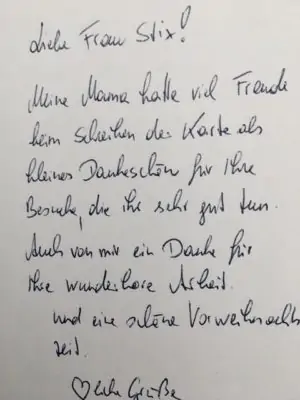 Liebe Frau Stix!
Meine Mama hatte viel Freude
beim Schreiben der Karte als
kleines Dankeschön für Ihre
Besuche, die ihr sehr gut tun.
Auch von mir ein Danke für
Ihre wunderbare Arbeit.
und eine schöne Vorweihnachts
zeit.
♡liche Grüße